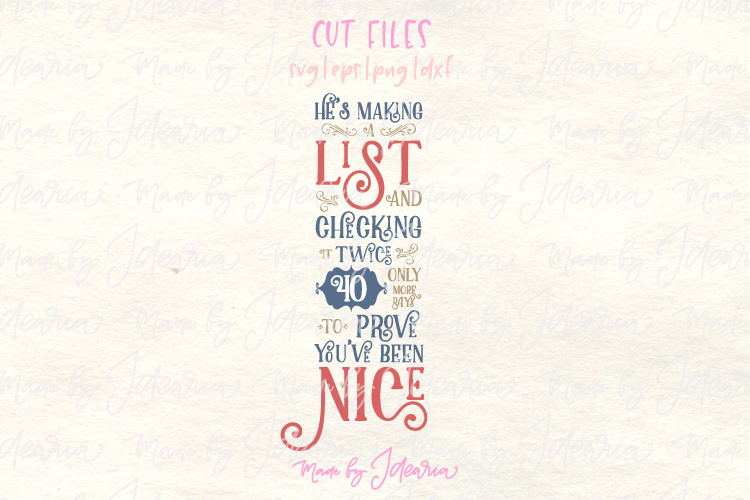 CUT FILES
svg|eps|png|dxf
HE'S MAKING
A
LIST
AND
CHECKING
IT TWICE
40 ONLY
MORE
DAYS
TO PROVE
YOU'VE BEEN
NICE
Made by Idearia